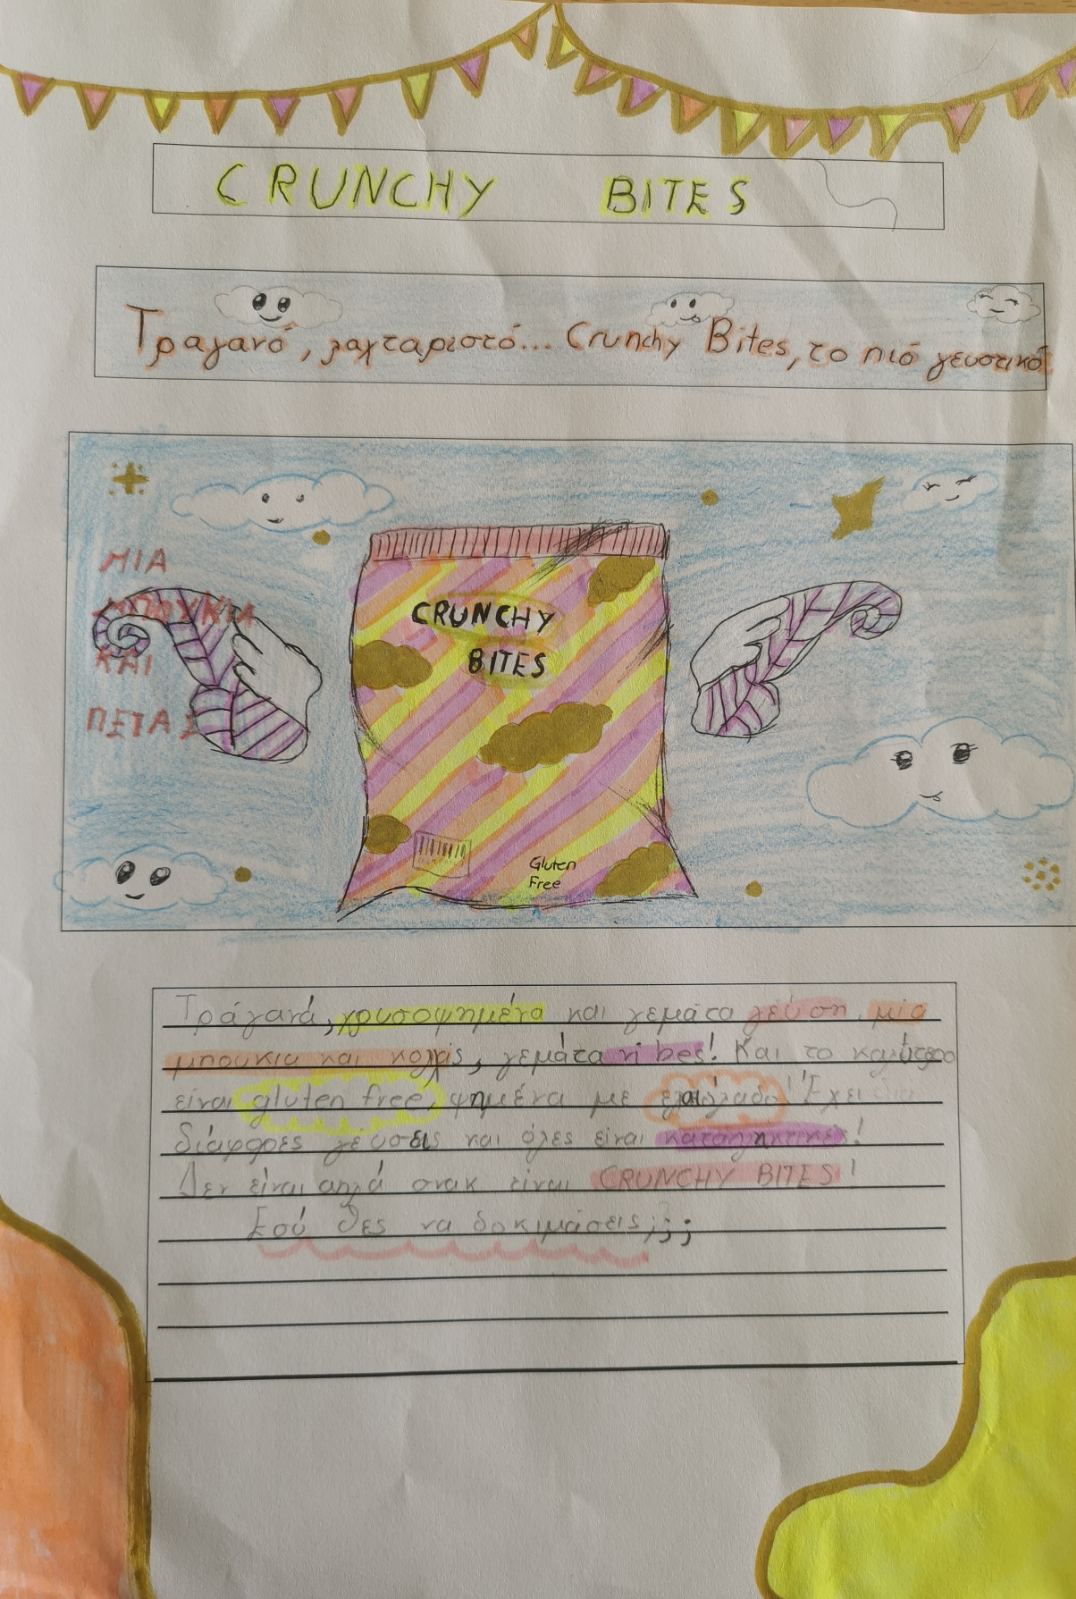 CRUNCHY BITES
Τραγανό, λαχταριστό... Crunchy Bites, το πιό γευστικό
ΜΙΑ
ΜΠΟΥΚΙΑ
ΚΑΙ
ΠΕΤΑΣ
CRUNCHY
BITES
Gluten
Free
Τράγανά, χρυσοψημένα και γεμάτα γεύση, μία
μπουκια και κολλάς, γεμάτα vibes! Και το καλύτερο
είναι gluten free, ψημένα με ελαιόλαδο! Έχει
διάφορες γεύσεις και όλες είναι καταπληκτικές!
Δεν είναι απλά σνακ είναι CRUNCHY BITES!
Εσύ θες να δοκιμάσεις;;;